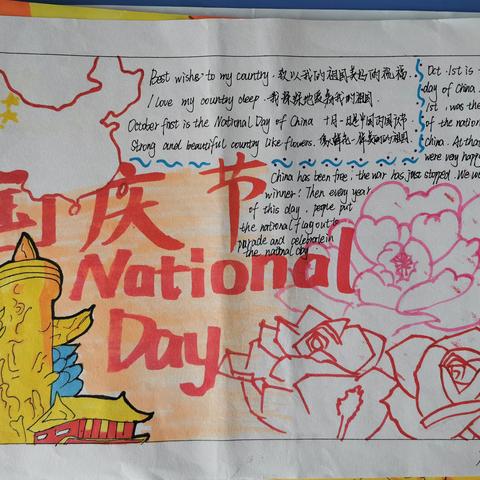 Best wishes to my country. 致以我的祖国美好的祝福.
I love my country deep. 我深深地爱着我的祖国.
October first is the National Day of China 十月一日是中国的国庆节
Strong and beautiful country like flowers. 像鲜花一样美丽的祖国
China has been free, the war has just stopped. We wo
winner! Then every year
of this day, people put
the national flag out to
parade and celebrate in
the national day
Oct. 1st is
day of China.
1st. was the
of the nation
china. At that
were very happy
国庆节
National
Day